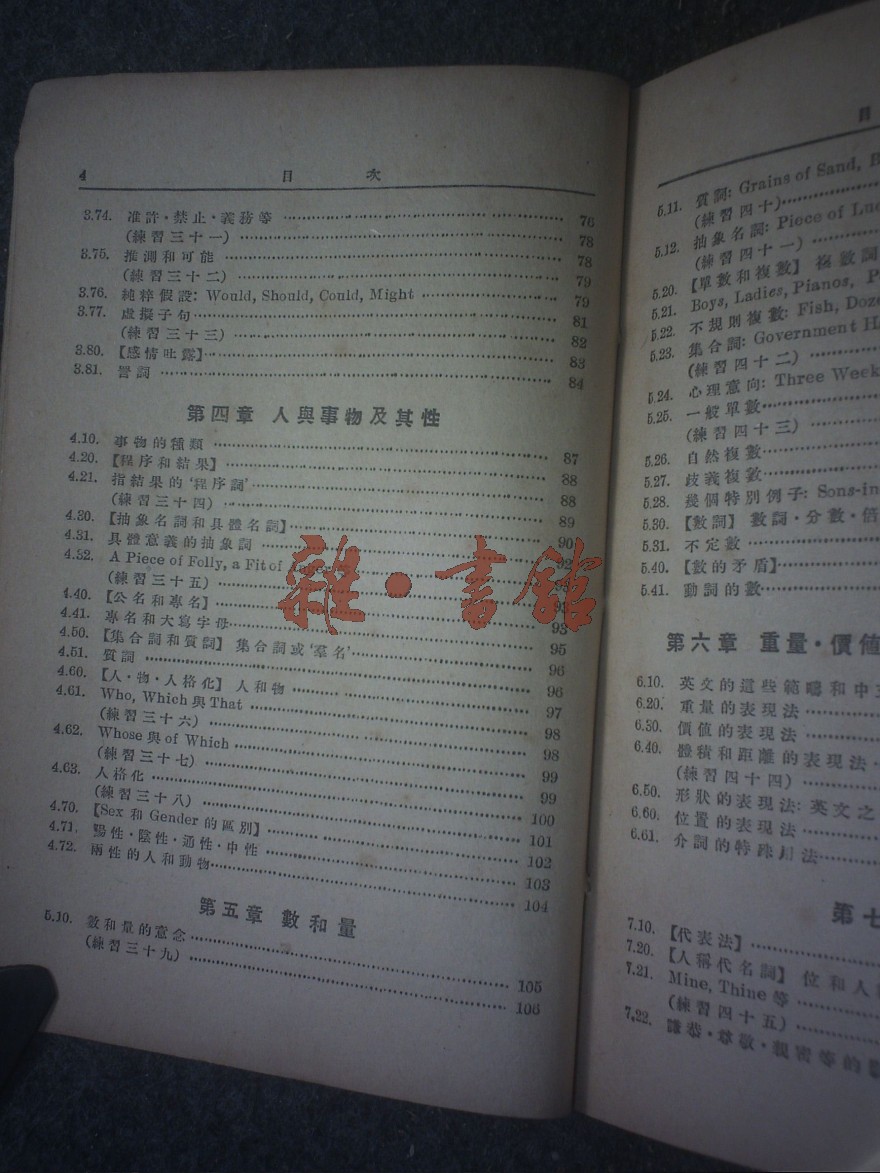 4 目 次
3.74. 准許·禁止·義務等 76
(練習三十一) 78
3.75. 推測和可能 78
(練習三十二) 79
3.76. 純粹假設: Would, Should, Could, Might 79
3.77. 虛擬子句 81
(練習三十三) 82
3.80. 【感情吐露】 83
3.81. 詈詞 84
第四章 人與事物及其性
4.10. 事物的種類 87
4.20. 【程序和結果】 88
4.21. 指結果的‘程序詞’ 88
(練習三十四) 89
4.30. 【抽象名詞和具體名詞】 90
4.31. 具體意義的抽象詞 92
4.32. A Piece of Folly, a Fit of
(練習三十五)
4.40. 【公名和專名】
4.41. 專名和大寫字母 93
4.50. 【集合詞和質詞】 集合詞或‘羣名’ 95
4.51. 質詞 96
4.60. 【人·物·人格化】 人和物 96
4.61. Who, Which 與 That 97
(練習三十六) 98
4.62. Whose 與 of Which 98
(練習三十七) 99
4.63. 人格化 99
(練習三十八) 100
4.70. 【Sex 和 Gender 的區別】 101
4.71. 陽性·陰性·通性·中性 102
4.72. 兩性的人和動物 103
104
第五章 數和量
5.10. 數和量的意念 105
(練習三十九) 106
雜·書館
目
5.11. 質詞: Grains of Sand, B
(練習四十)
5.12. 抽象名詞: Piece of Luc
(練習四十一)
5.20. 【單數和複數】 複數詞
5.21. Boys, Ladies, Pianos, P
5.22. 不規則複數: Fish, Doze
5.23. 集合詞: Government H
(練習四十二)
5.24. 心理意向: Three Week
5.25. 一般單數
(練習四十三)
5.26. 自然複數
5.27. 歧義複數
5.28. 幾個特別例子: Sons-in
5.30. 【數詞】 數詞·分數·倍
5.31. 不定數
5.40. 【數的矛盾】
5.41. 動詞的數
第六章 重量·價值
6.10. 英文的這些範疇和中文
6.20. 重量的表現法
6.30. 價值的表現法
6.40. 體積和距離的表現法
(練習四十四)
6.50. 形狀的表現法: 英文之
6.60. 位置的表現法
6.61. 介詞的特殊用法
第七
7.10. 【代表法】
7.20. 【人稱代名詞】 位和人
7.21. Mine, Thine 等
(練習四十五)
7.22. 謙恭·尊敬·親密等的